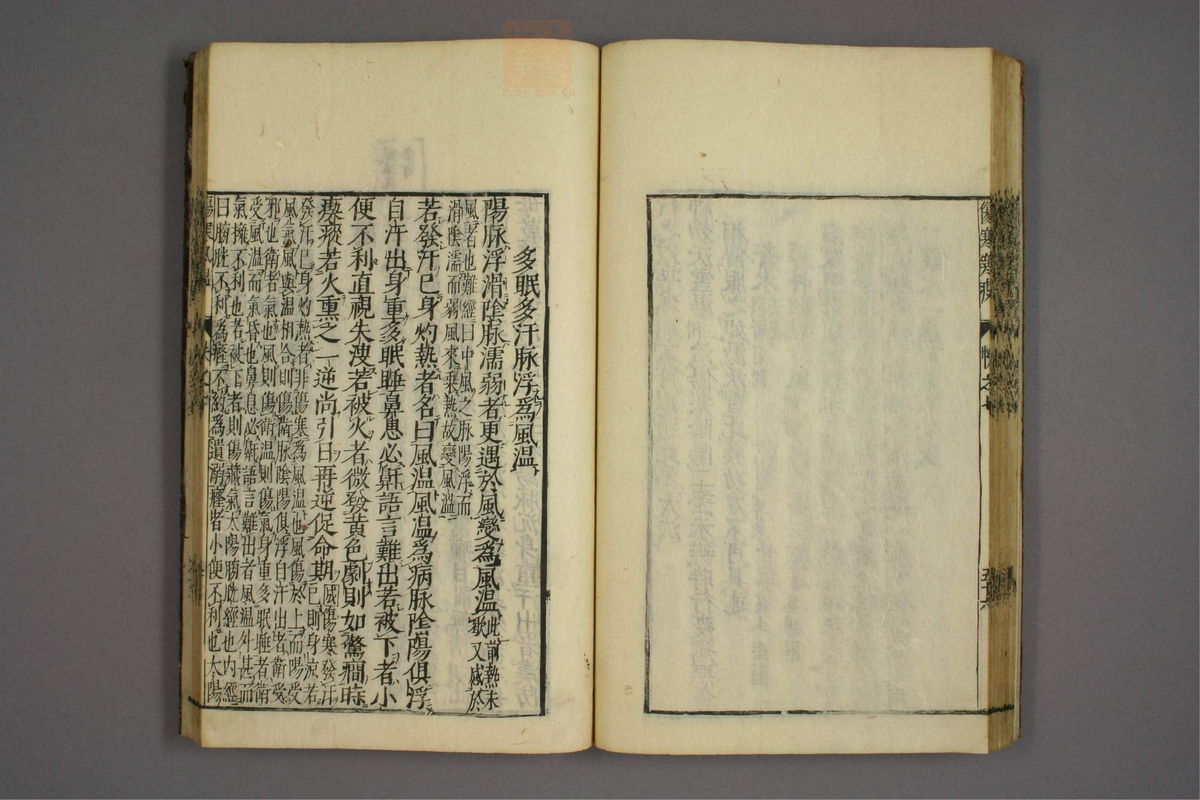 傷寒寒疫
帙之七
五十六
多眠多汗脉浮為風温
陽脉浮滑陰脉濡弱者更遇於風變為風温此前熱未
歇又感於
風者也難經曰中風之脉陽浮而
滑陰濡而弱風來乗熱故變風温
若發汗已身灼熱者名曰風温風温為病脉陰陽俱浮
自汗出身重多眠睡鼻息必鼾語言難出若被下者小
便不利直視失溲若被火者微發黄色劇則如驚癎時
瘈瘲若火熏之一逆尚引日再逆促命期傷寒發汗
已則身凉若
發汗已身灼熱者非傷寒為風温也風傷於上而陽受
風氣風與温相合則傷衛脉陰陽俱浮自汗出者衛受
邪也衛者氣也風則傷衛温則傷氣身重多眠睡者衛
受風温而氣昏也鼻息必鼾語言難出者風温外甚而
氣擁不利也若被下者則傷藏氣太陽膀胱經也内經
曰膀胱不利為癃不約為遺溺癃者小便不利也太陽
傷寒風温